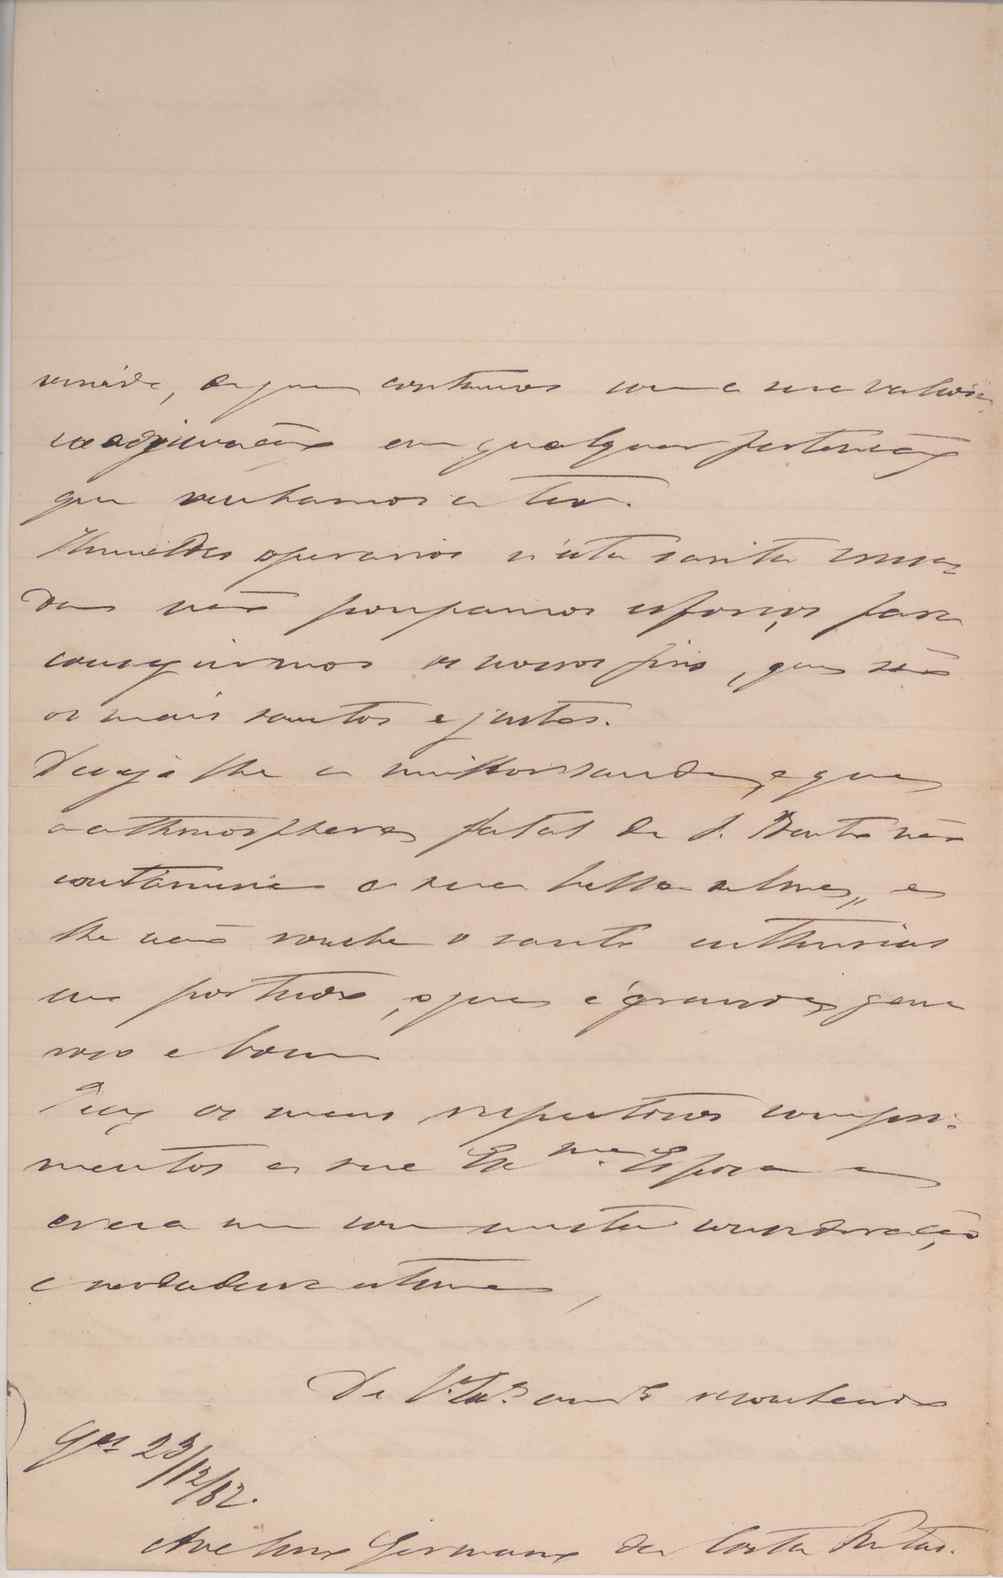 de que contamos com a sua valiosa
coadjuvação em qualquer pertenção
que venhamos a ter.
Humildes operarios n'esta santa cruza-
da não poupamos esforços para
conseguirmos os nossos fins, que são
os mais santos e justos.
Desejo lhe a melhor saude, e que
a athmosphera fatal de S. Bento não
contamine a sua bella alma, e
lhe não roube o santo enthusias
mo portuense, que é grande, gene
roso e bom
Peço os meus respeitosos compri-
mentos a sua Ex.ma Esposa e
creia me com muita consideração
e verdadeira estima,
De V. Ex.a am.o reconhecido
G.es 23/12/82.
Avelino Germano da Costa Freitas.